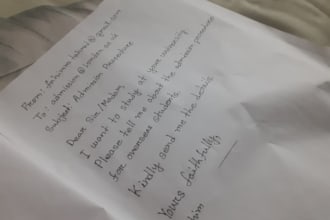 From: fahim.fahmi@gmail.com
To: admission@london.ac.uk
Subject: Admission Procedure
Dear Sir/Madam,
I want to study at your university.
Please tell me about the admission procedure
for overseas students.
Kindly send me the details.
Yours faithfully,